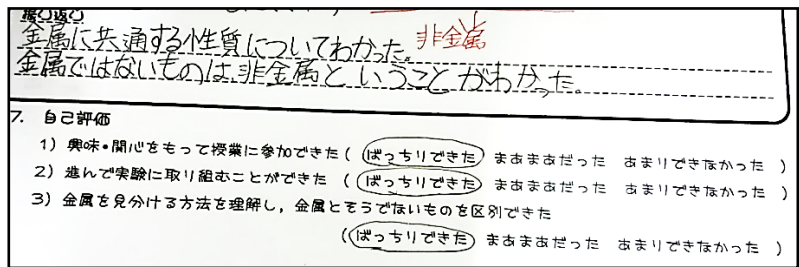 振り返り
金属に共通する性質についてわかった。
非金属
金属ではないものは、非金属ということがわかった。
7. 自己評価
1) 興味・関心をもって授業に参加できた ( ばっちりできた まあまあだった あまりできなかった )
2) 進んで実験に取り組むことができた ( ばっちりできた まあまあだった あまりできなかった )
3) 金属を見分ける方法を理解し，金属とそうでないものを区別できた
( ばっちりできた まあまあだった あまりできなかった )